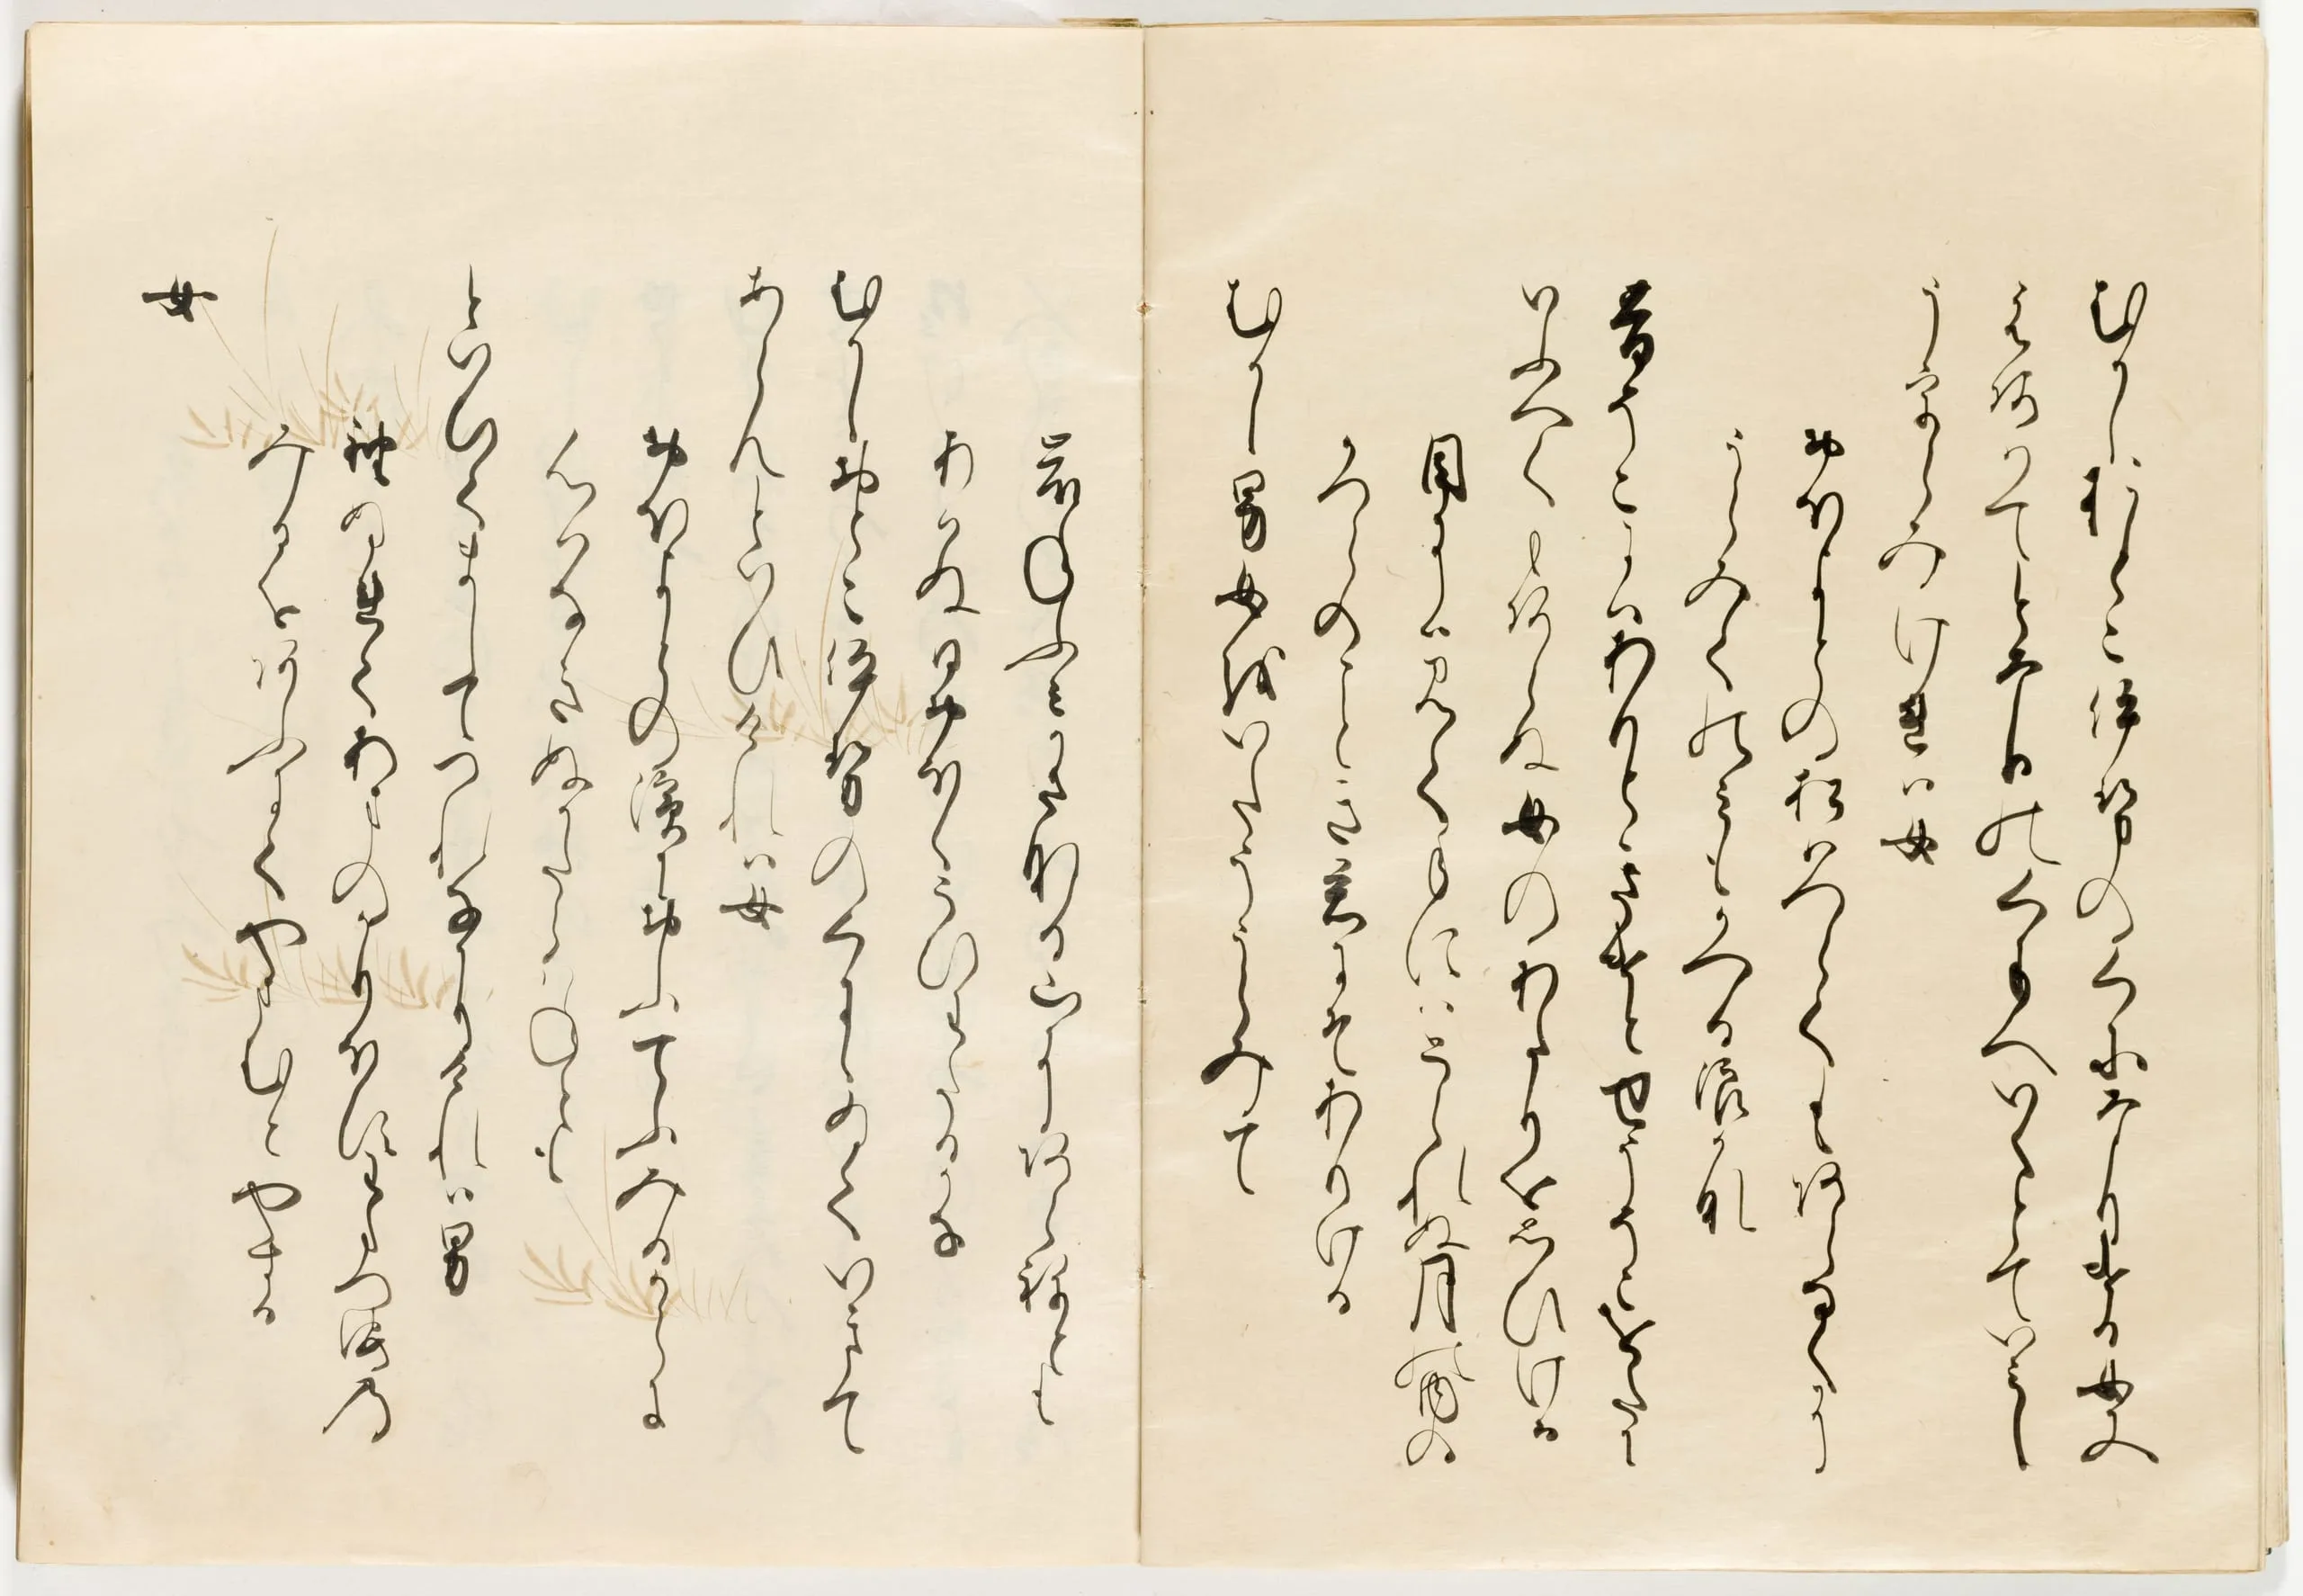 むかしおとこ伊勢のくになりける女又
えあはてとなりのくにへいくとていみし
ううらみけれは女
おほよとの松はつらくもあらなくに
うらみてのみもかへる浪かな
昔そこにはありときけとせうそこをたに
いふへくもあらぬ女のあたりをおもひける
目には見て手にはとられぬ月のうちの
かつらのことき君にそありける
むかし男女をいたううらみて
岩ねふみかさなる山にあらねとも
あはぬ日おほくこひわたるかな
むかしおとこ伊勢のくににゐていきて
あらんといひけれは女
おほよとのはまにおふてふみるからに
心はなきぬかたらはねとも
といひてましてつれなかりけれは男
袖ぬれてあまのかりほすわたつうみの
みるをあふにてやまむとやする
女